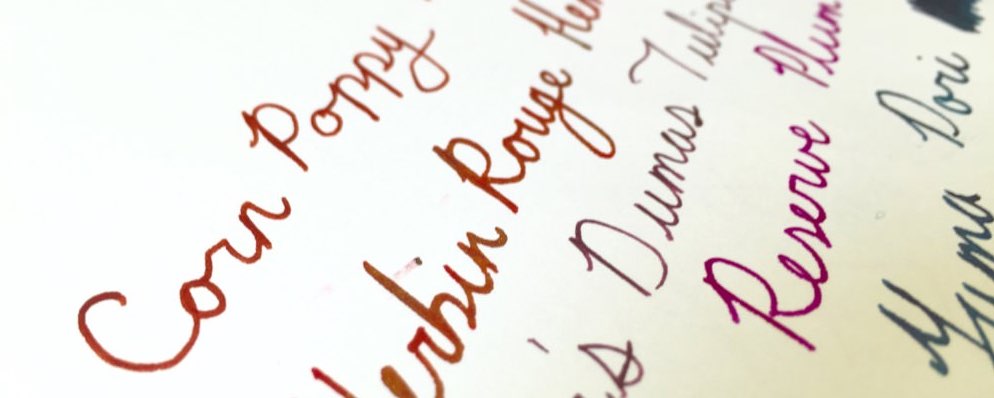 Corn Poppy
erbin Rouge Hem
's Dumas Tulip
Reserve Plum
Yama Dori